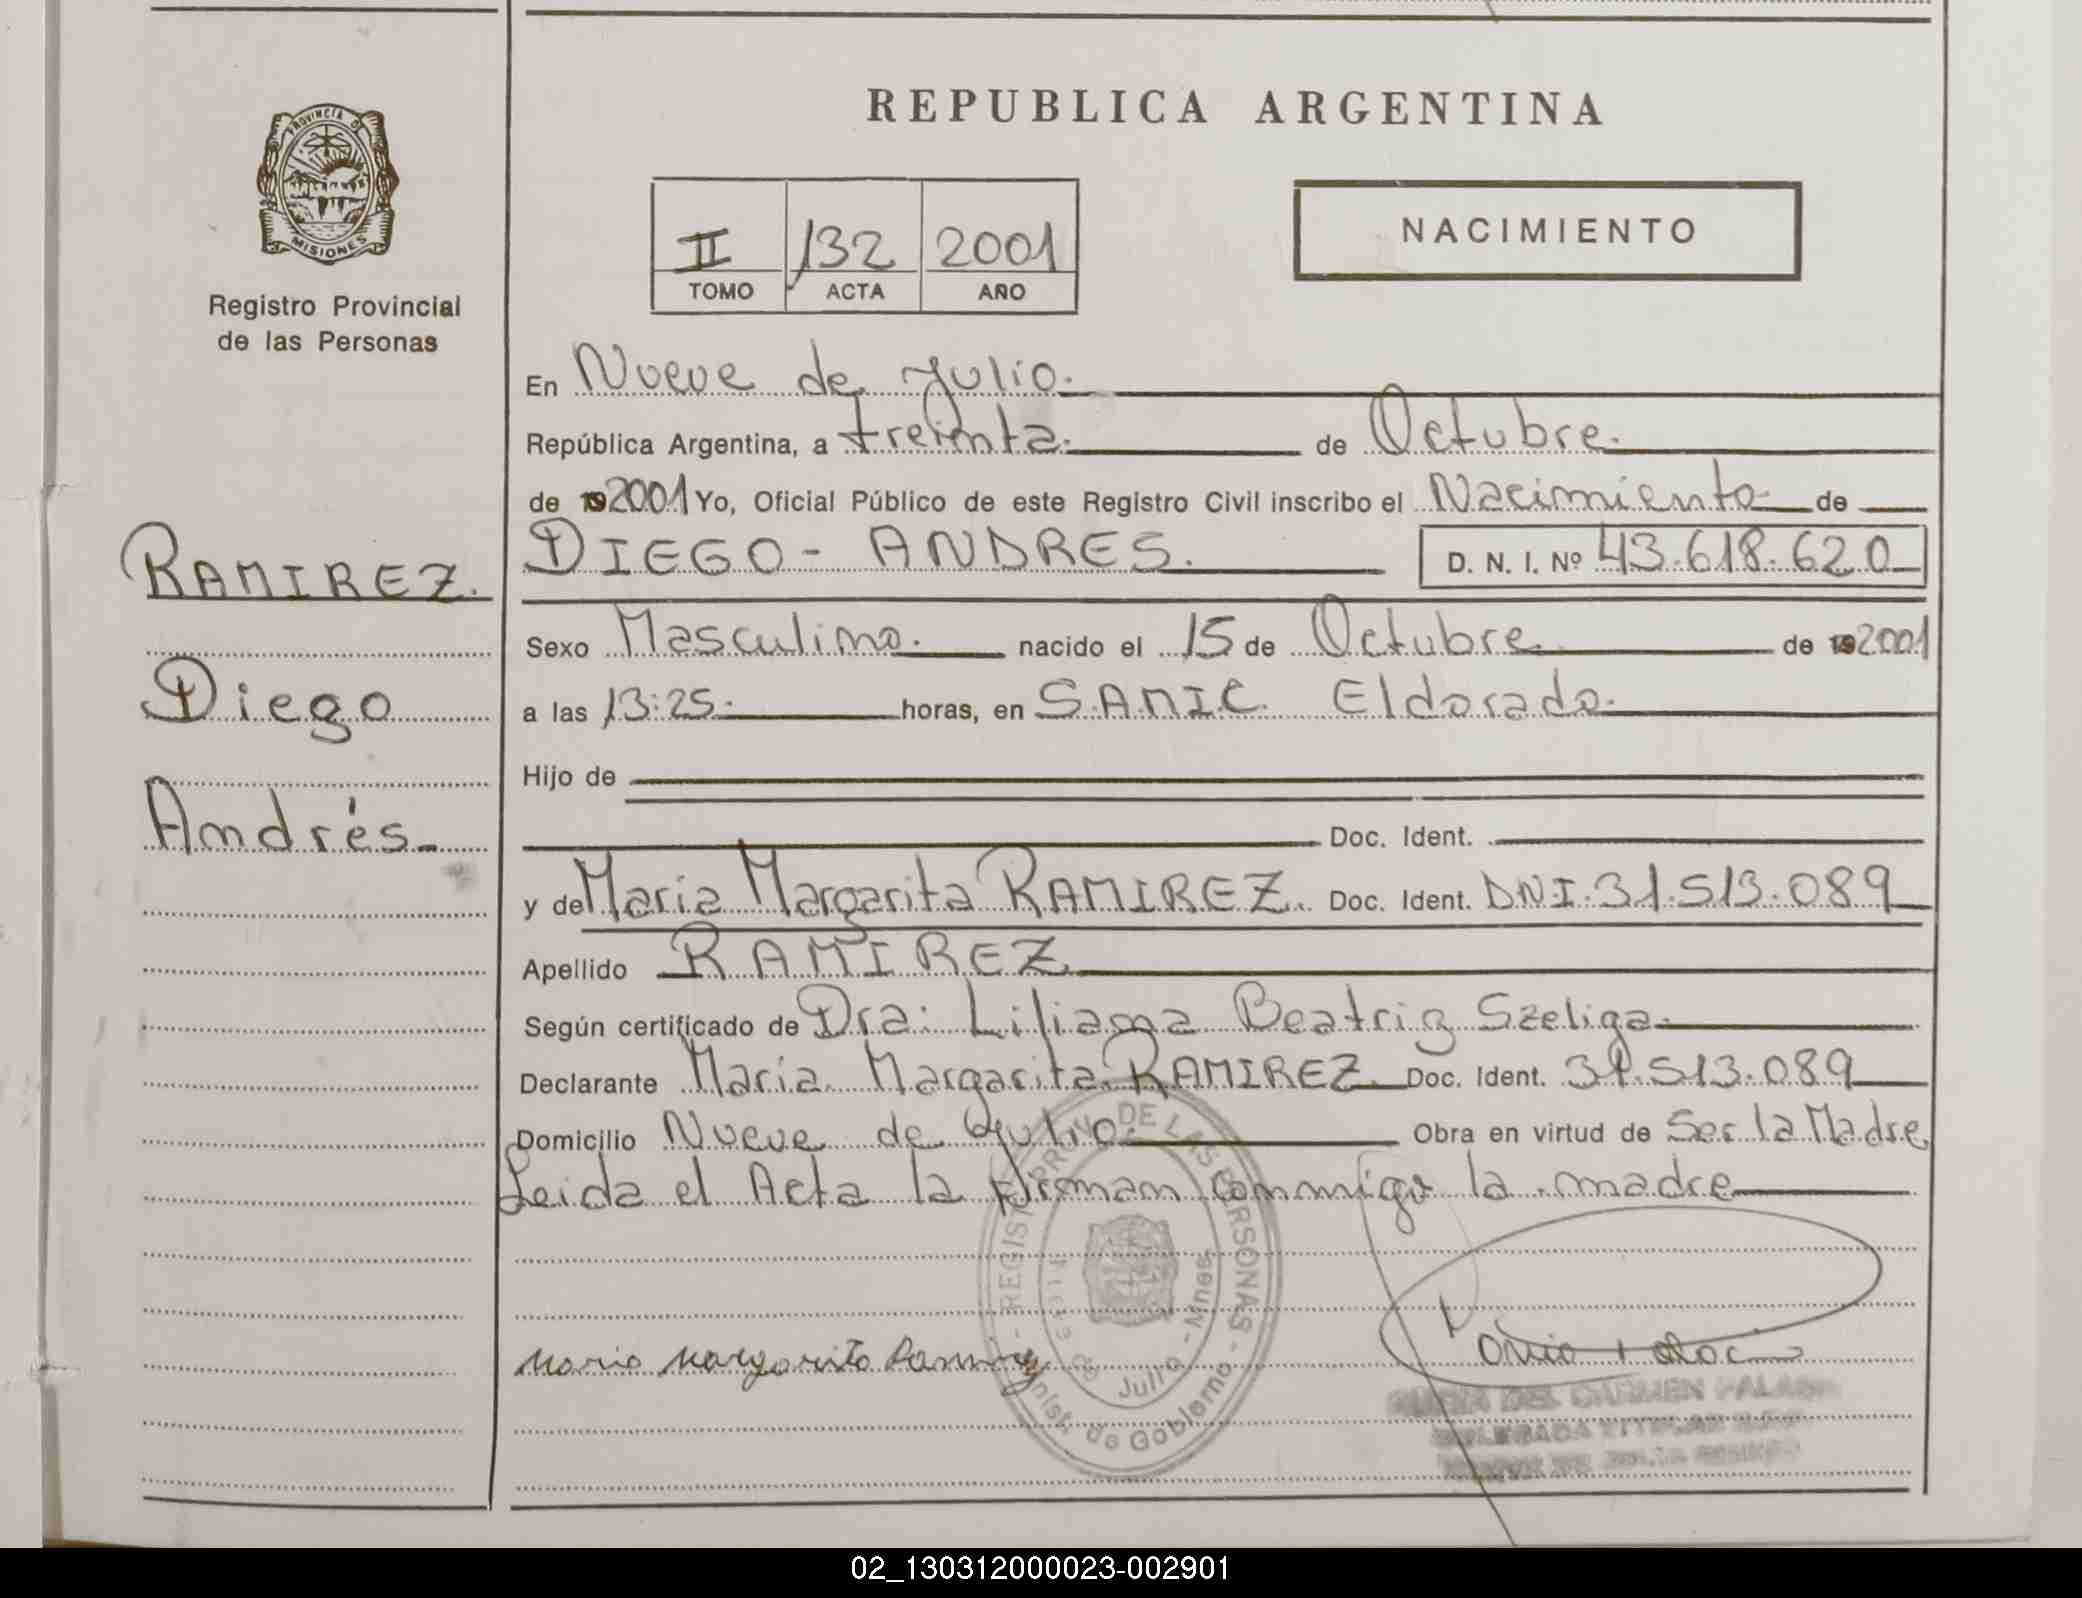 PROVINCIA DE
MISIONES
Registro Provincial
de las Personas
RAMIREZ.
Diego
Andrés
REPUBLICA ARGENTINA
II 132 2001
TOMO ACTA AÑO
NACIMIENTO
En Nueve de Julio.
República Argentina, a treinta. de Octubre.
de 19 2001 Yo, Oficial Público de este Registro Civil inscribo el Nacimiento de
DIEGO - ANDRES. D. N. I. Nº 43.618.620
Sexo Masculino. nacido el 15 de Octubre de 19 2001
a las 13:25. horas, en S.A.M.I.C. Eldorado.
Hijo de
Doc. Ident.
y de Maria Margarita RAMIREZ. Doc. Ident. DNI.31.513.089
Apellido RAMIREZ
Según certificado de Dra: Liliana Beatriz Szeliga.
Declarante Maria Margarita RAMIREZ. Doc. Ident. 31.513.089
Domicilio Nueve de Julio. Obra en virtud de Ser la Madre
Leida el Acta la firman conmigo la madre
REGIST. PROV. DE LAS PERSONAS - Minist. de Gobierno -
de Julio - Mnes.
Maria Margarita Ramirez
DEL CARMEN
02_130312000023-002901